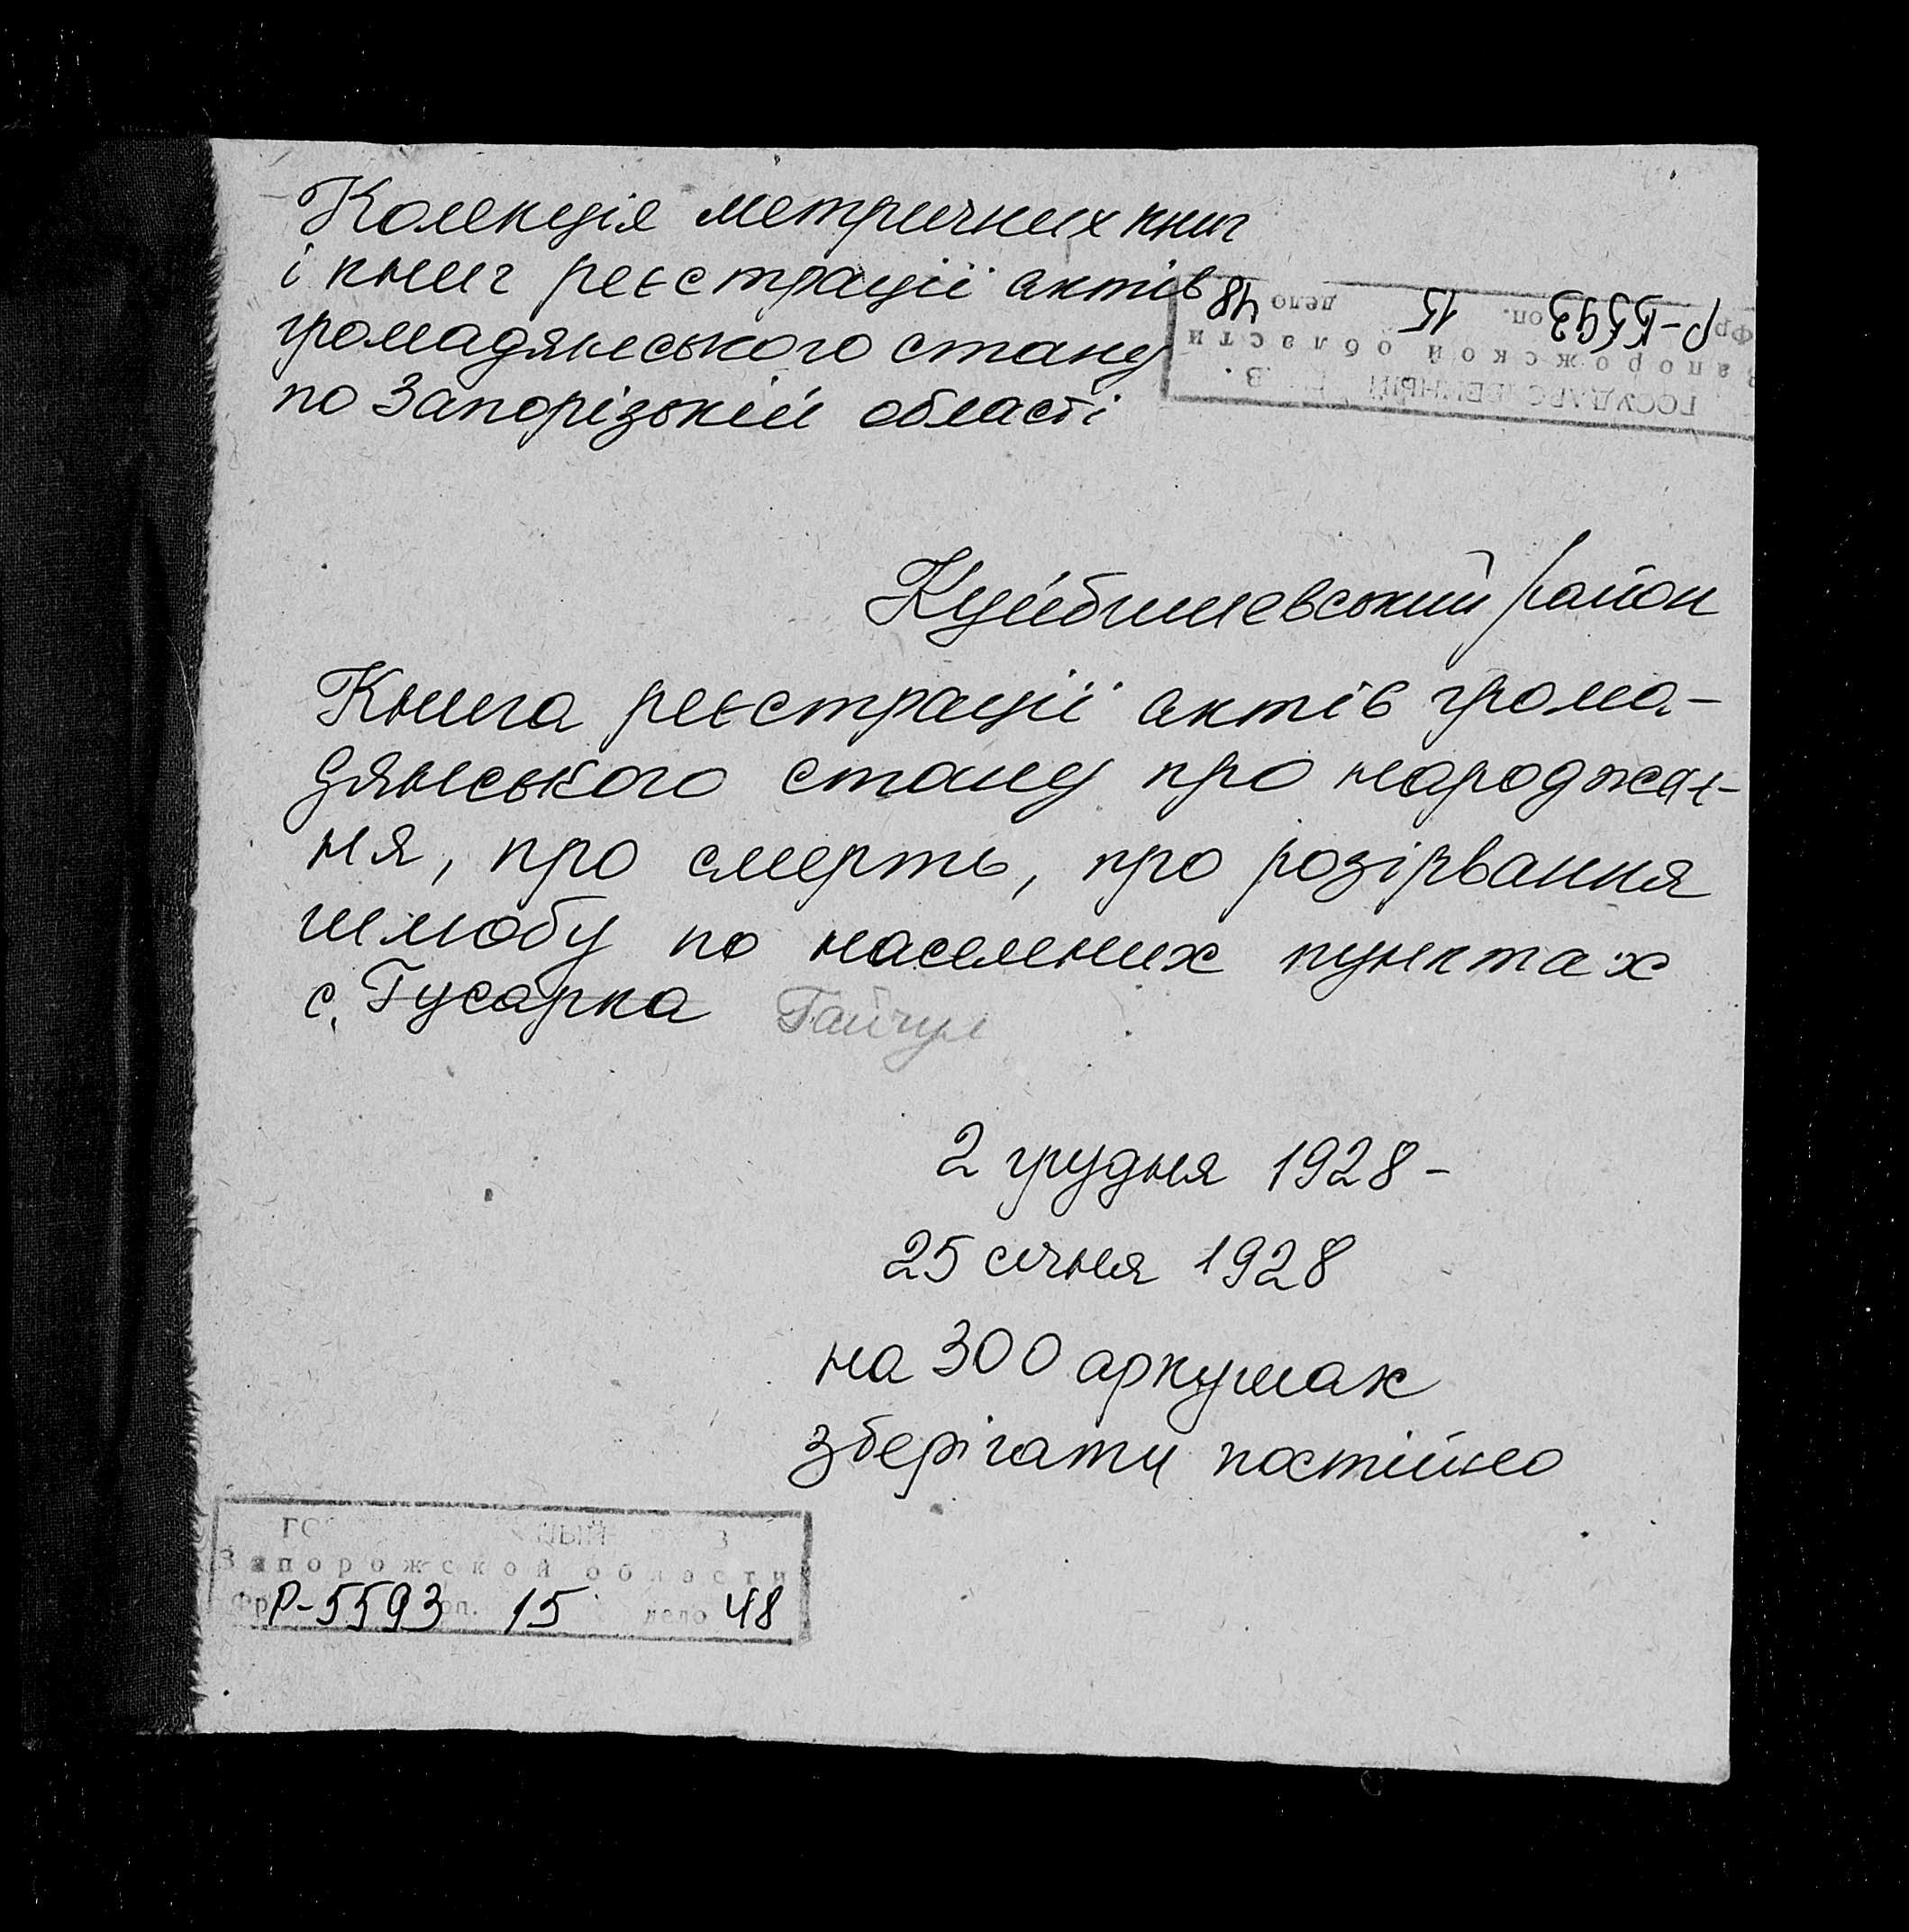 Колекція метричних книг
і книг реєстрації актів
громадянського стану
по Запорізькій області
ГОСУДАРСТВЕННЫЙ
Запорожской области
Фр Р-5593 оп. 15 дело 48
Куйбишевський район
Книга реєстрації актів грома-
дянського стану про народжен-
ня, про смерть, про розірвання
шлюбу по населених пунктах
с. Гусарка Гайчул
2 грудня 1928-
25 січня 1928
на 300 аркушах
зберігати постійно
Запорожской области
Фр Р-5593 оп. 15 дело 48